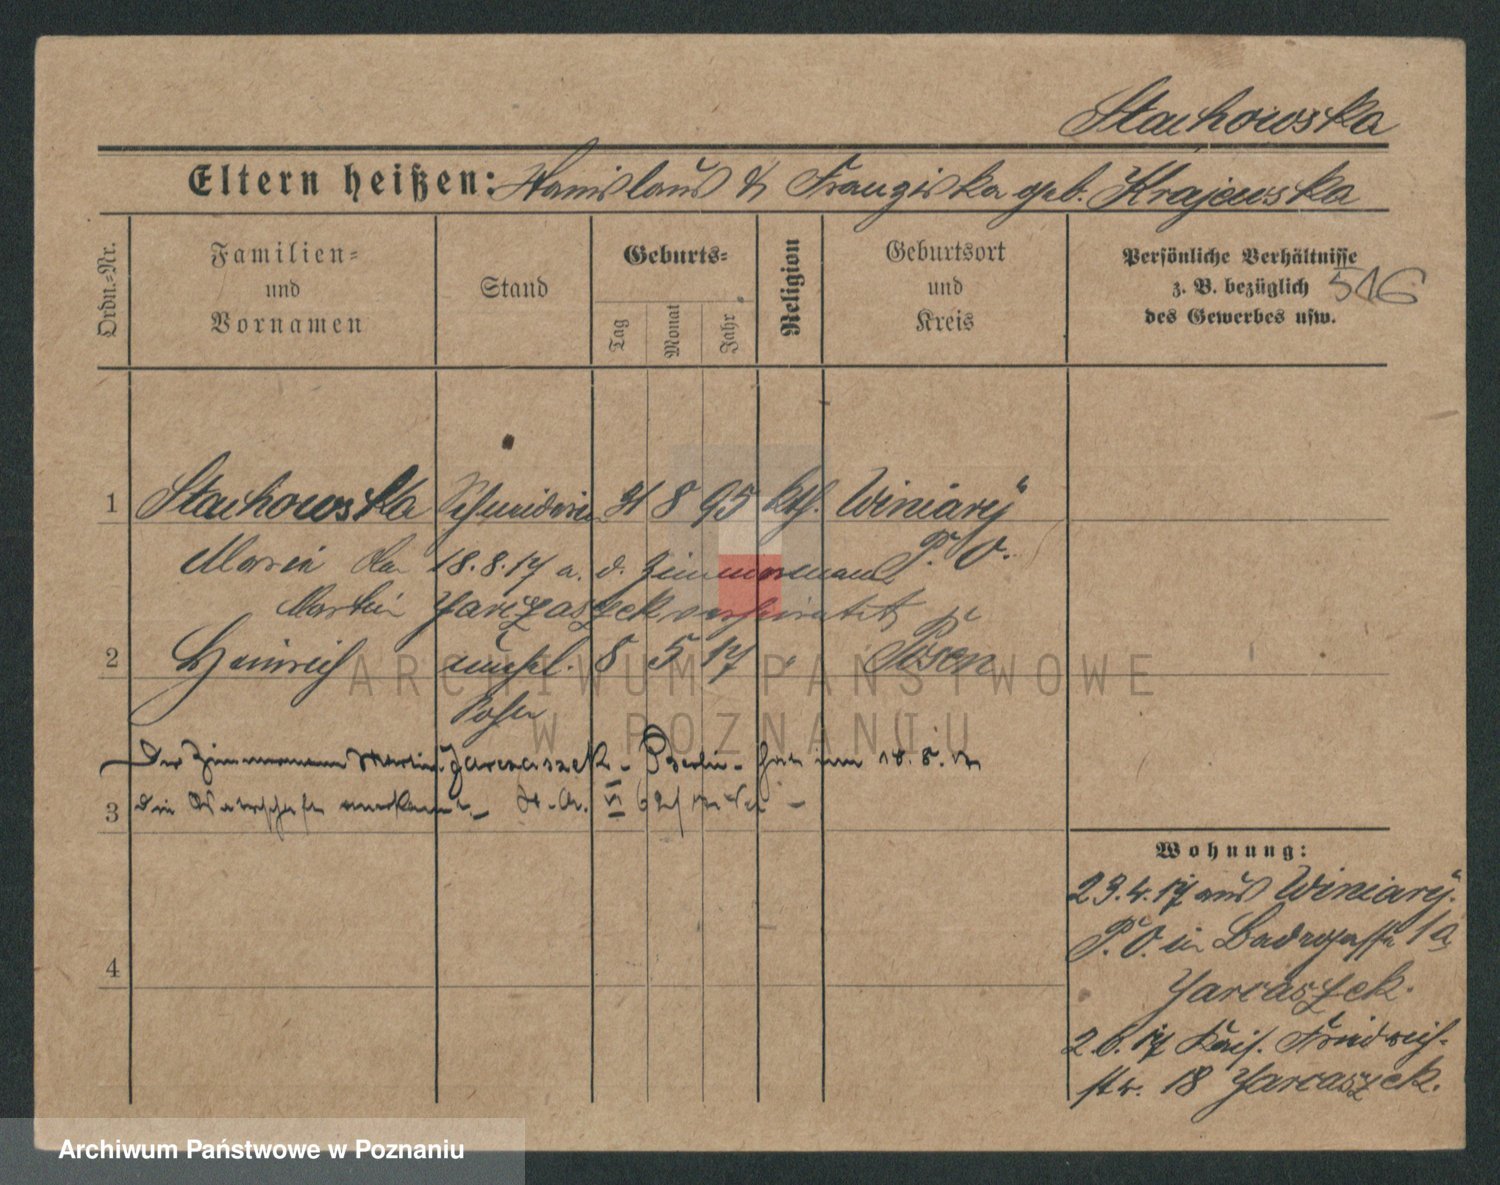 Stachowska
Eltern heißen: Stanislaus & Franziska geb. Krajewska
Ordn.=Nr.
Familien=
und
Vornamen
Stand
Geburts=
Tag
Monat
Jahr
Religion
Geburtsort
und
Kreis
Persönliche Verhältnisse
z. B. bezüglich
des Gewerbes usw.
516
1 Stachowska Schneiderin 31 8 95 kth. Winiary
Maria 18.8.17 a. d. Zimmermann P. O.
Martin Jarczaszek verheiratet
2 Heinrich unehel. 8 5 17 " Posen
Sohn
Der Zimmermann Martin Jarczaszek - Berlin - hat am 18.8.17
3 die Vaterschaft anerkannt - St. A. VI
4
Wohnung:
23.4.17 aus Winiary
P. O. in Badegasse 1a
Jarcaszek.
2.6.17 Kais. Friedrich-
str. 18 Jarcaszek.
ARCHIWUM PAŃSTWOWE
W POZNANIU
Archiwum Państwowe w Poznaniu